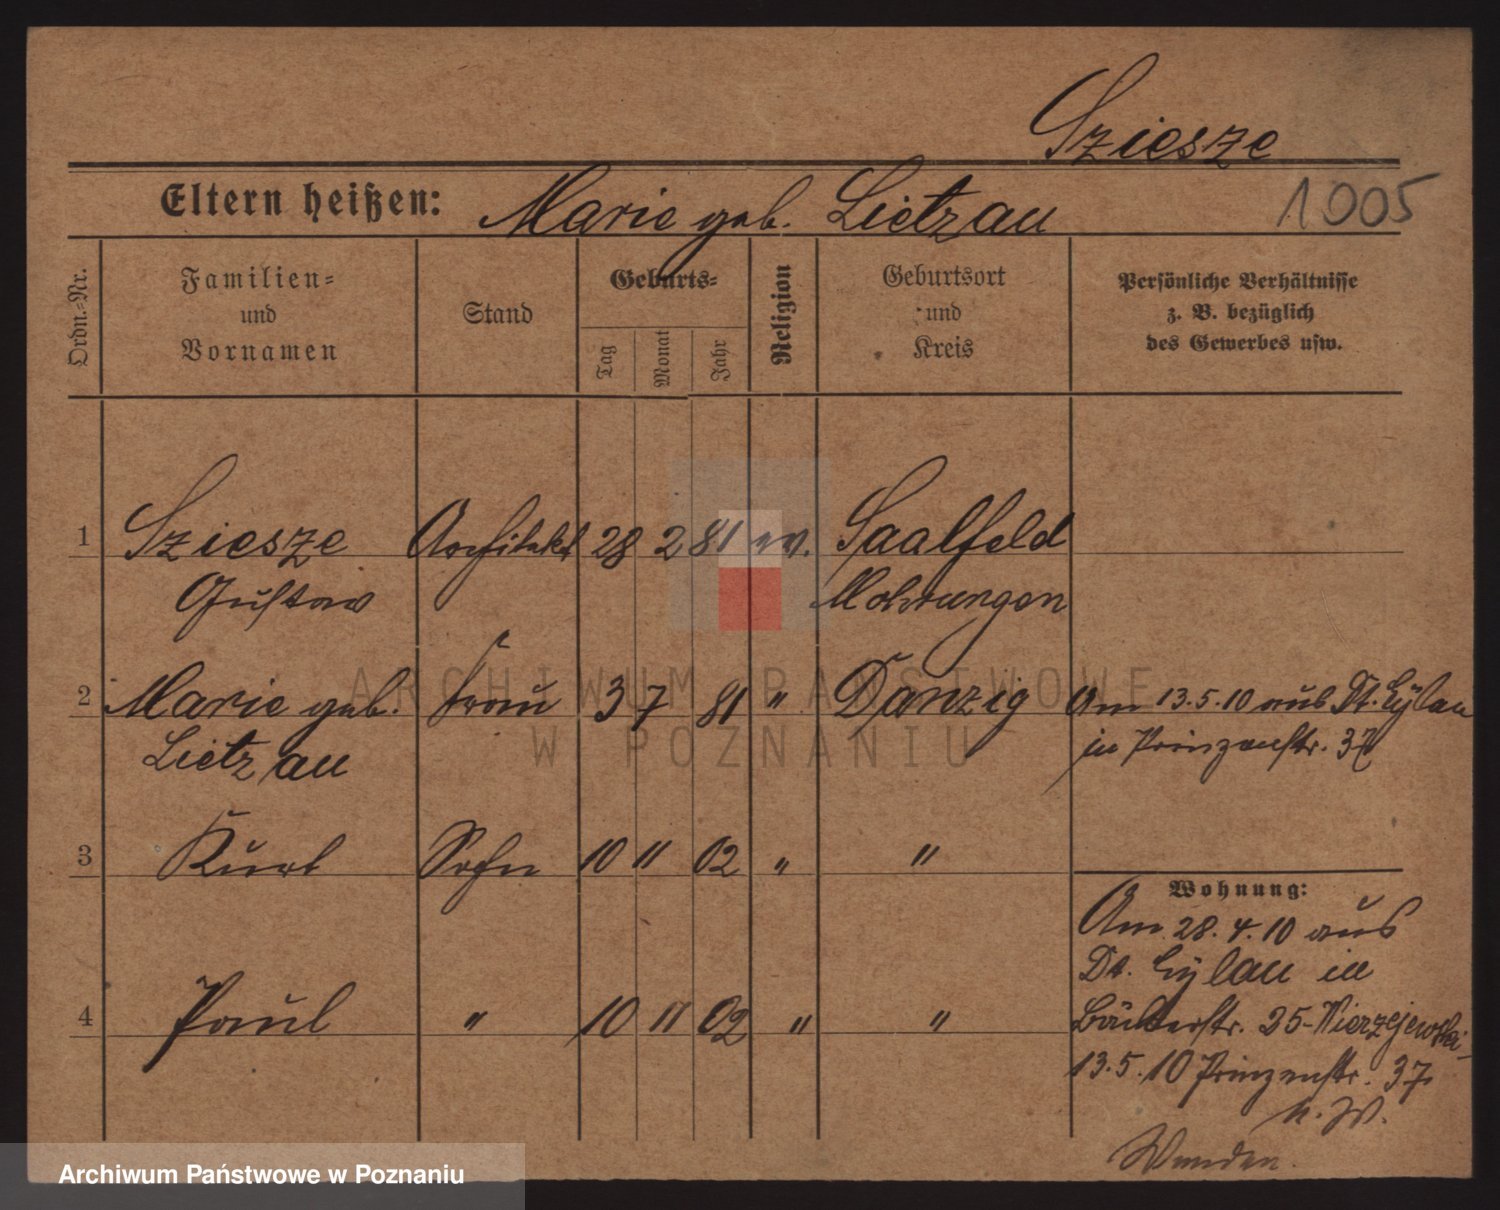 Sziesze
Eltern heißen: Marie geb. Lietzau
1005
Ordn.-Nr.
Familien-
und
Vornamen
Stand
Geburts-
Tag
Monat
Jahr
Religion
Geburtsort
und
Kreis
Persönliche Verhältnisse
z. B. bezüglich
des Gewerbes usw.
1 Sziesze Architekt 28 2 81 ev. Saalfeld
Gustav Mohrungen
2 Marie geb. Frau 3 7 81 " Danzig Am 13.5.10 aus Dt. Eylau
Lietzau in Prinzenstr. 37
3 Kurt Sohn 10 11 02 " "
Wohnung:
Am 28.4.10 aus
Dt. Eylau in
4 Paul " 10 11 02 " " Bäckerstr. 25-Wierzejewski-
13.5.10 Prinzenstr. 37
n. W.
Wenden.
ARCHIWUM PAŃSTWOWE
W POZNANIU
Archiwum Państwowe w Poznaniu